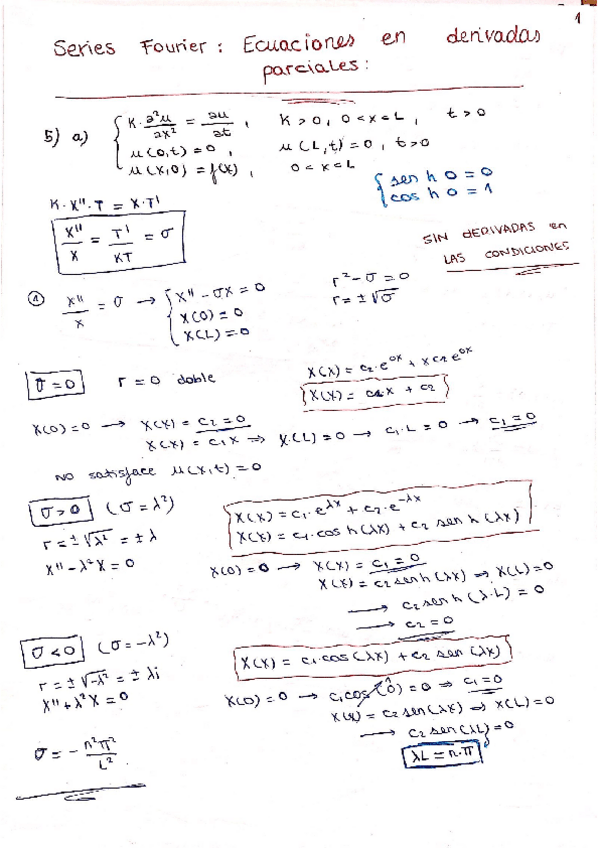 1
Series Fourier : Ecuaciones en derivadas
parciales :
5) a) { K·∂²u/∂x² = ∂u/∂t , K>0, 0<x<L, t>0
u(0,t)=0 , u(L,t)=0, t>0
u(x,0)=f(x) , 0<x<L
{ sen h 0 = 0
cos h 0 = 1
K·X''·T = X·T'
X''/X = T'/KT = σ
SIN DERIVADAS en
LAS CONDICIONES
① X''/X = σ → { X''-σX = 0
X(0) = 0
X(L) = 0
r²-σ = 0
r = ±√σ
σ=0 r = 0 doble
X(x) = c₁·e^0x + xc₂e^0x
X(x) = c₁x + c₂
X(0)=0 → X(x) = c₂ = 0
X(x) = c₁x ⇒ X(L)=0 → c₁·L = 0 → c₁ = 0
NO satisface u(x,t)=0
σ>0 (σ=λ²)
r = ±√λ² = ±λ
X''-λ²X = 0
X(x) = c₁·e^λx + c₂·e^-λx
X(x) = c₁·cos h(λx) + c₂ sen h (λx)
X(0)=0 → X(x) = c₁ = 0
X(x) = c₂senh(λx) ⇒ X(L)=0
→ c₂senh(λ·L) = 0
→ c₂ = 0
σ<0 (σ=-λ²)
r = ±√-λ² = ±λi
X''+λ²X = 0
σ = - n²π²/L²
X(x) = c₁·cos(λx) + c₂ sen (λx)
X(0)=0 → c₁cos(0) = 0 ⇒ c₁=0
X(x) = c₂sen(λx) ⇒ X(L)=0
→ c₂sen(λL)=0
λL = n·π